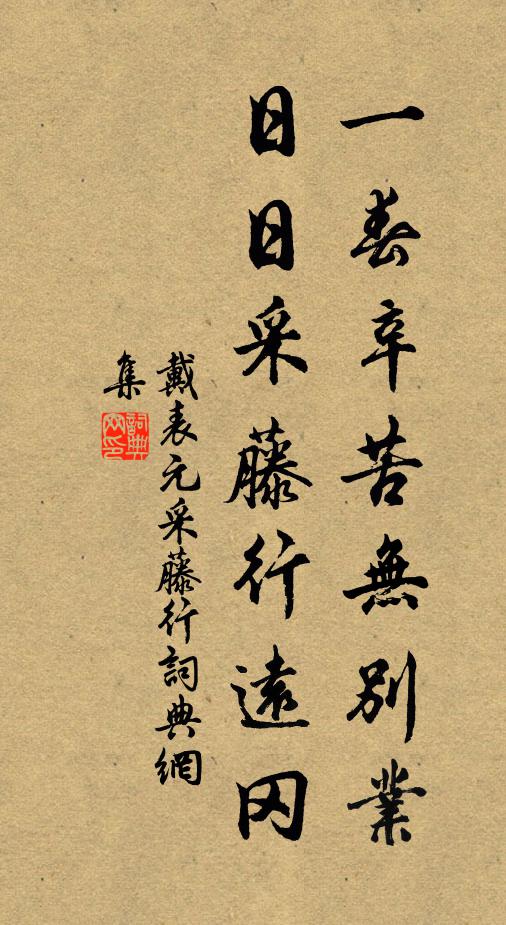 一春辛苦無別業
日日采藤行遠冈
戴表元采藤行詞典網
集
詞典網印